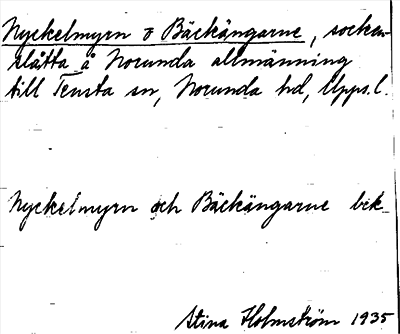 Nyckelmyrn o Bäckängarne, socken-
slåtta å Norunda allmänning
till Tensta sn, Norunda hd, Upps. l.
Nyckelmyrn och Bäckängarne bek
Stina Holmström 1935